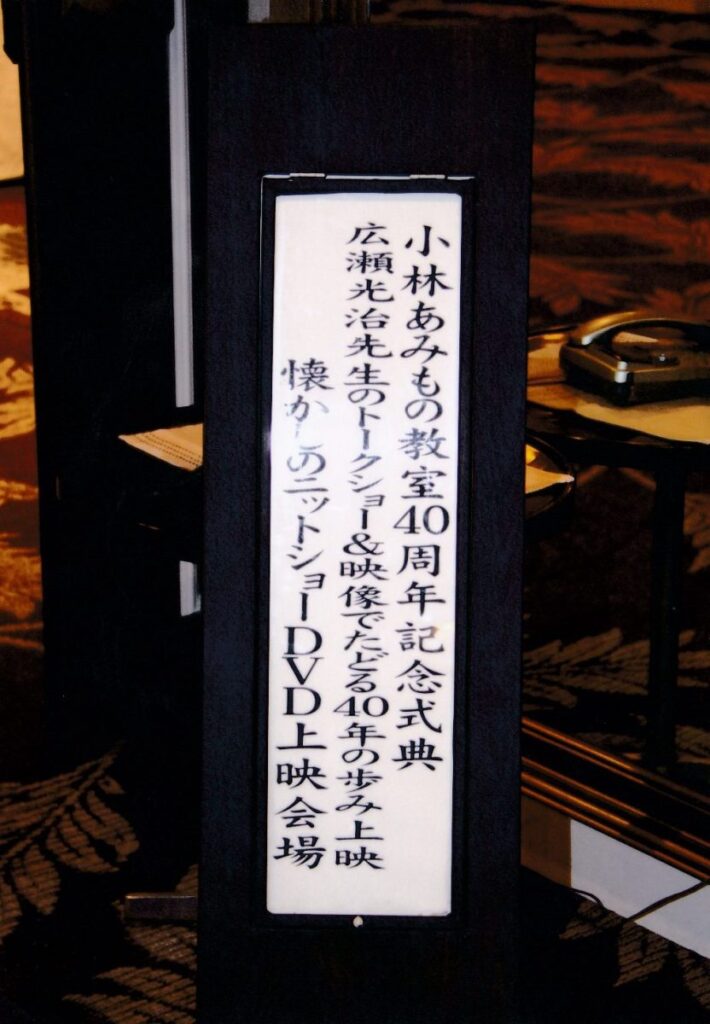 小林あみもの教室40周年記念式典
広瀬光治先生のトークショー&映像でたどる40年の歩み上映
懐かしのニットショーDVD上映会場